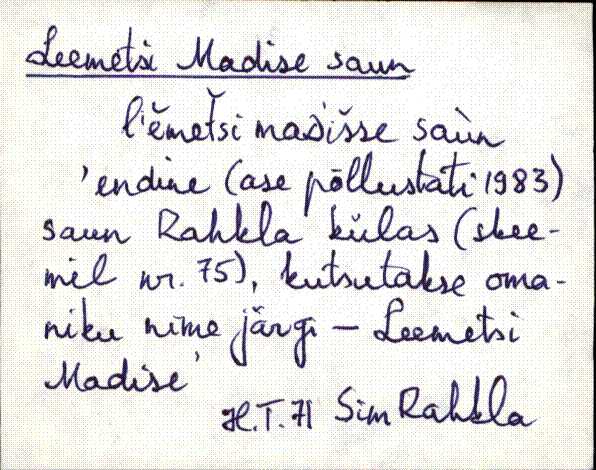 Leemetsi Madise saun
l'ĕmeťši maďišse saùn
'endine (ase põllustati 1983)
saun Rahkla külas (skee-
mil nr. 75), kutsutakse oma-
niku nime järgi – Leemetsi
Madise'
H.T. 71 Sim Rahkla